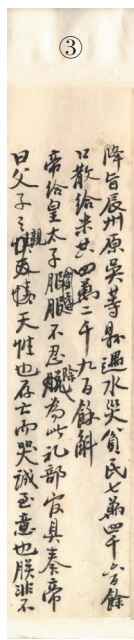 ③
降旨辰州原吳等縣遇水災貧民七萬四千六百餘
口散給米共四萬二千九百餘斛
帝給皇太子服服不忍除脱為此礼部官具奏帝
曰父子之親愛情天性也存亡而哭誠至意也朕非不